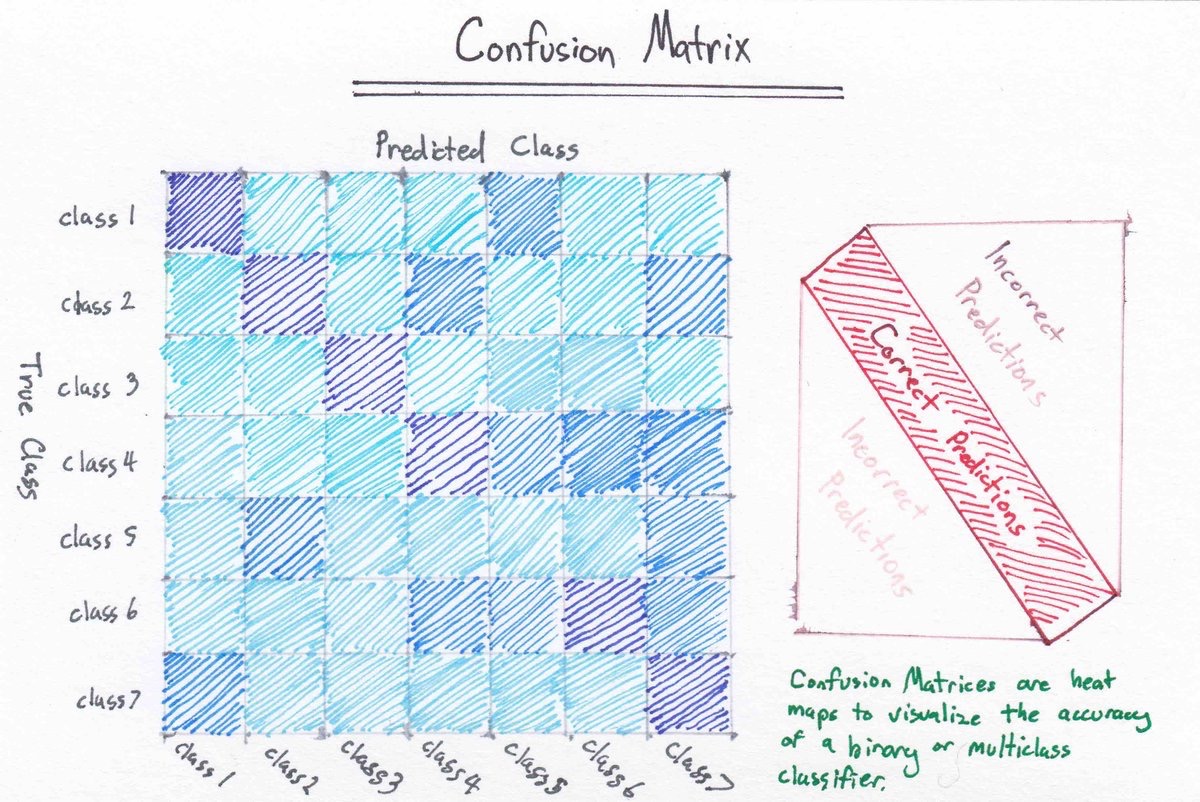 Confusion Matrix
Predicted Class
True Class
class 1
class 2
class 3
class 4
class 5
class 6
class 7
class 1
class 2
class 3
class 4
class 5
class 6
class 7
Incorrect
Predictions
Correct Predictions
Incorrect
Predictions
Confusion Matrices are heat
maps to visualize the accuracy
of a binary or multiclass
classifier.